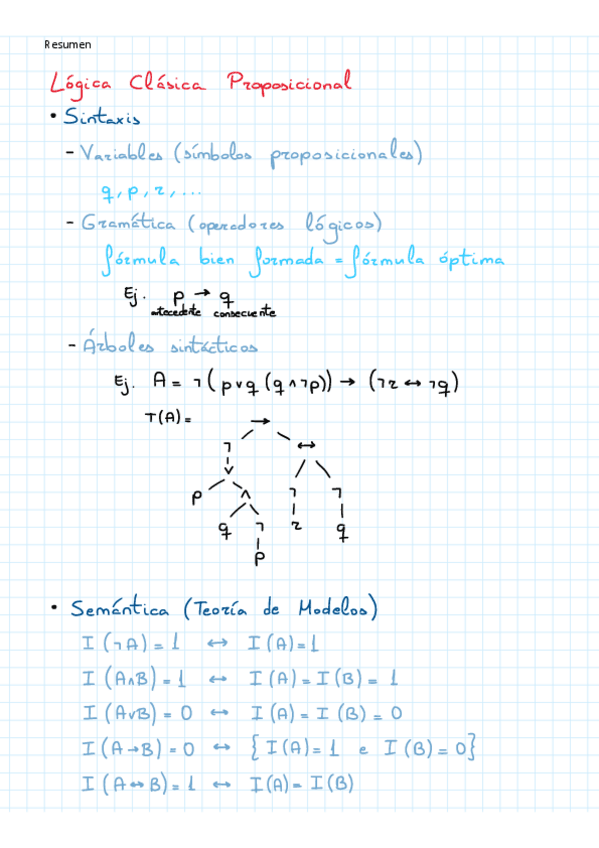 Resumen
Lógica Clásica Proposicional
• Sintaxis
- Variables (símbolos proposicionales)
q, p, r, ...
- Gramática (operadores lógicos)
fórmula bien formada = fórmula óptima
Ej. p → q
antecedente consecuente
- Árboles sintácticos
Ej. A = ¬(p∨q (q∧¬p)) → (¬r ↔ ¬q)
T(A) = →
¬ ↔
∨
p ∧ ¬ ¬
q ¬ r q
p
• Semántica (Teoría de Modelos)
I(¬A) = 1 ↔ I(A) = 1
I(A∧B) = 1 ↔ I(A) = I(B) = 1
I(A∨B) = 0 ↔ I(A) = I(B) = 0
I(A→B) = 0 ↔ {I(A) = 1 e I(B) = 0}
I(A↔B) = 1 ↔ I(A) = I(B)